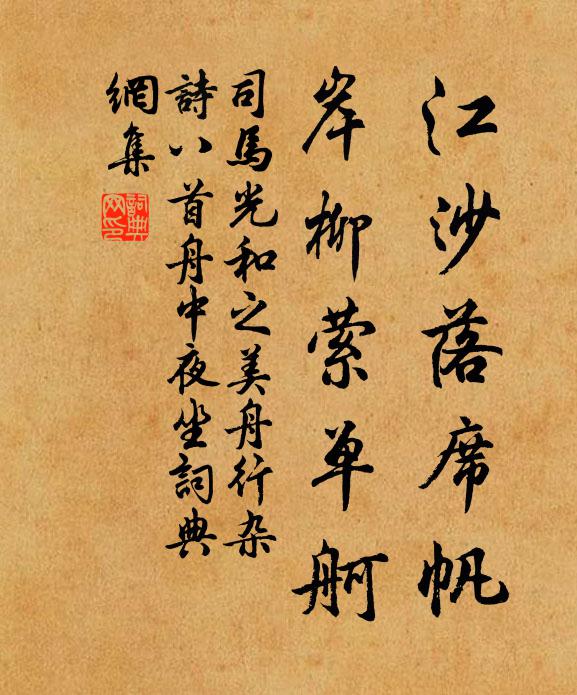 江沙落席帆
岸柳萦单舸
司馬光和之美舟行杂
詩八首舟中夜坐詞典
網集
詞典网印